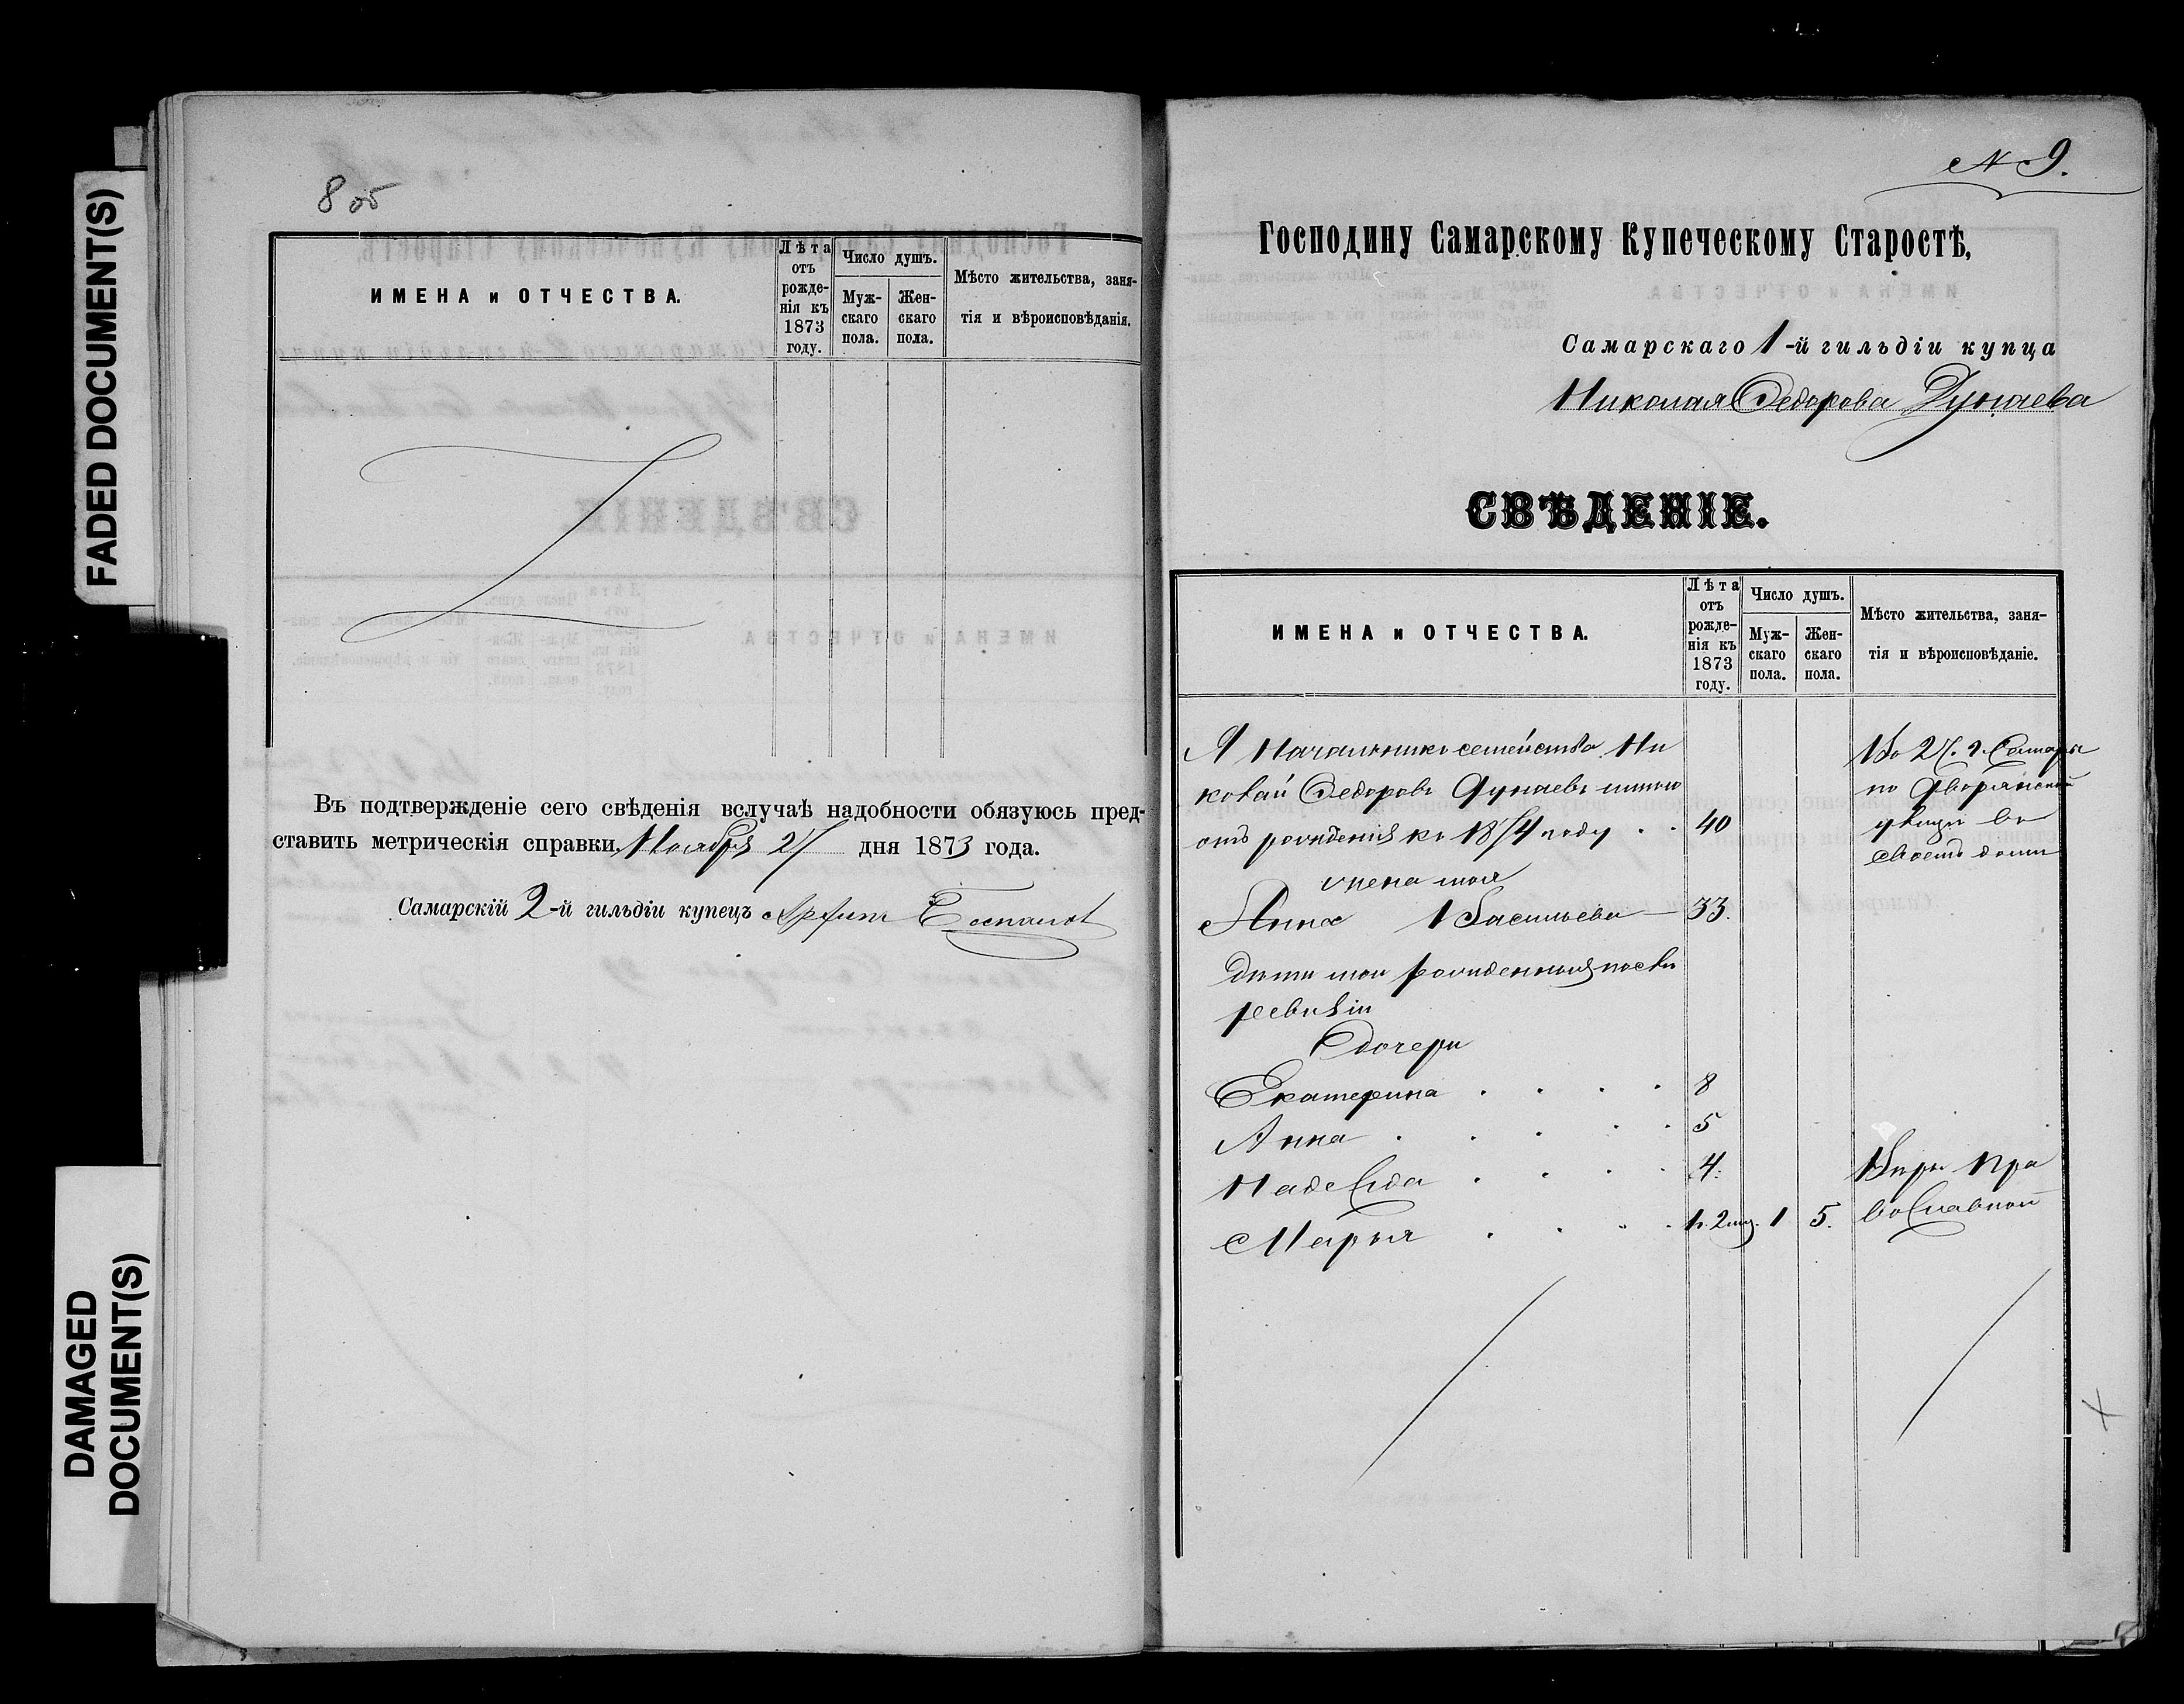 FADED DOCUMENT(S)
DAMAGED
DOCUMENT(S)
8 об
ИМЕНА и ОТЧЕСТВА.
Лѣта
отъ
рожде-
нія къ
1873
году.
Число душъ.
Муж-
скаго
пола.
Жен-
скаго
пола.
Мѣсто жительства, заня-
тія и вѣроисповѣданія.
Въ подтвержденіе сего свѣденія вслучаѣ надобности обязуюсь пред-
ставить метрическія справки. Ноября 27 дня 1873 года.
Самарскій 2-й гильдіи купецъ
№ 9.
Господину Самарскому Купеческому Старостѣ,
Самарскаго 1-й гильдіи купца
Николая Федорова Дунаева
СВѢДЕНІЕ.
ИМЕНА и ОТЧЕСТВА.
Лѣта
отъ
рожде-
нія къ
1873
году.
Число душъ.
Муж-
скаго
пола.
Жен-
скаго
пола.
Мѣсто жительства, заня-
тія и вѣроисповѣданіе.
Я Начальникъ семейства Ни
колай Федоровъ Дунаевъ имѣю
отъ рожденія къ 1874 году . . 40
Во 2 Ч. г. Самары
по Дворянской
улицѣ въ
своемъ доме
жена моя
Анна Васильева — 33.
дѣти мои рожденныя послѣ
ревизіи
дочери
Екатерина . . . . 8
Анна . . . . . 5
Надежда . . . . 4.
Марья . . . . 1 г. 2 мц. 1 5.
Вѣры Пра
вославной